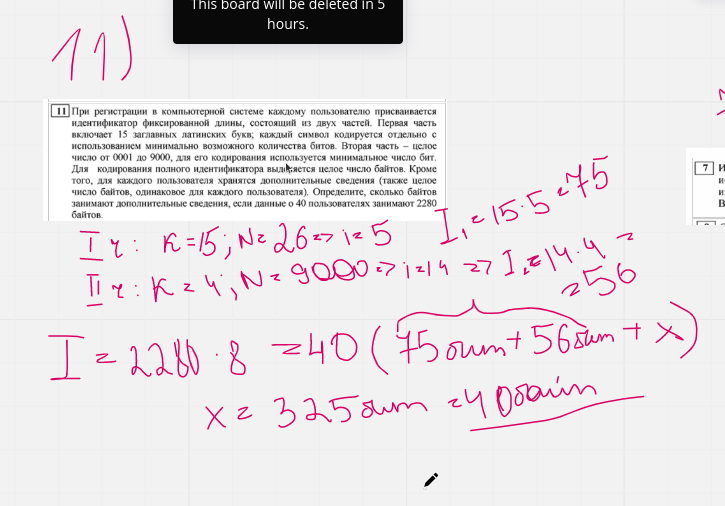 This board will be deleted in 5
hours.
11)
11 При регистрации в компьютерной системе каждому пользователю присваивается
идентификатор фиксированной длины, состоящий из двух частей. Первая часть
включает 15 заглавных латинских букв; каждый символ кодируется отдельно с
использованием минимально возможного количества битов. Вторая часть – целое
число от 0001 до 9000, для его кодирования используется минимальное число бит.
Для кодирования полного идентификатора выделяется целое число байтов. Кроме
того, для каждого пользователя хранятся дополнительные сведения (также целое
число байтов, одинаковое для каждого пользователя). Определите, сколько байтов
занимают дополнительные сведения, если данные о 40 пользователях занимают 2280
байтов.
7
I ч: K=15; N=26 => i=5 I₁=15·5=75
II ч: K=4; N=9000 => i=14 => I₂=14·4=
=56
I = 2280·8 =40(75бит+56бит+x)
x= 325бит =40байт